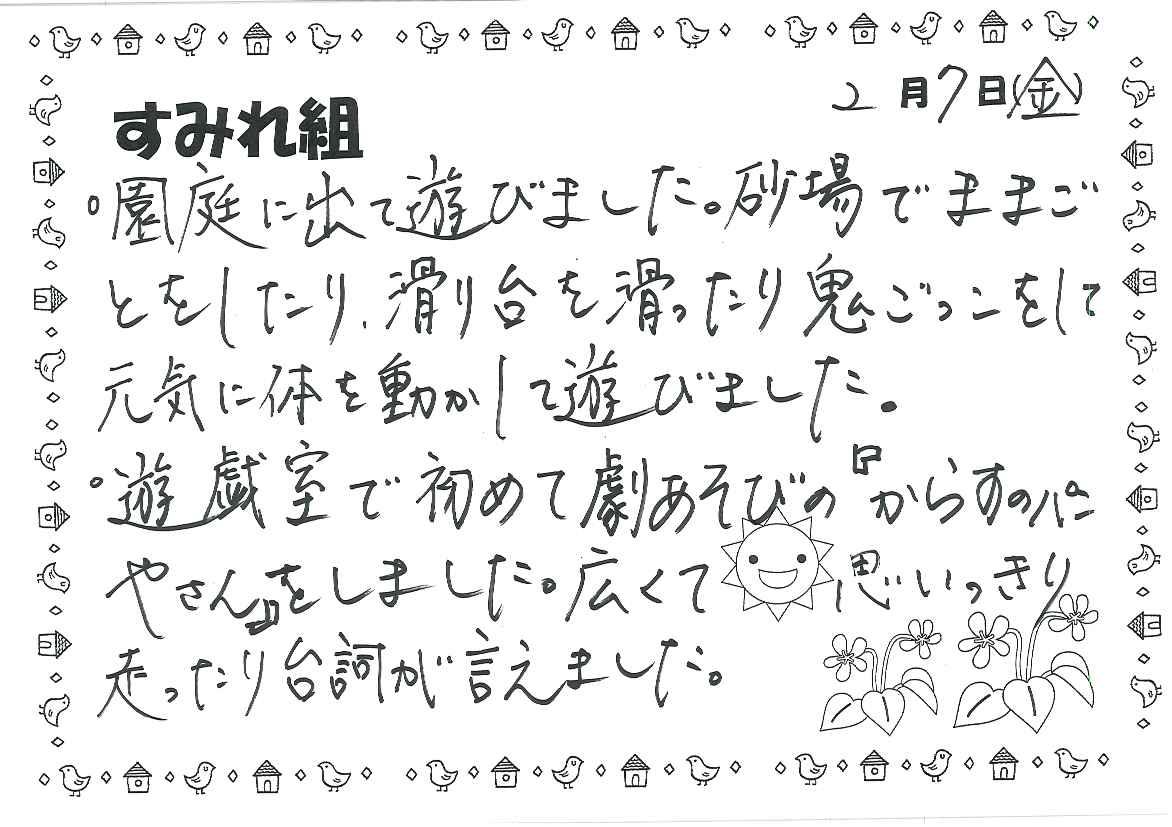 2月7日(金)
すみれ組
○園庭に出て遊びました。砂場でままご
とをしたり、滑り台を滑ったり鬼ごっこをして
元気に体を動かして遊びました。
○遊戯室で初めて劇あそびの『からすのパン
やさん』をしました。広くて思いっきり
走ったり台詞が言えました。